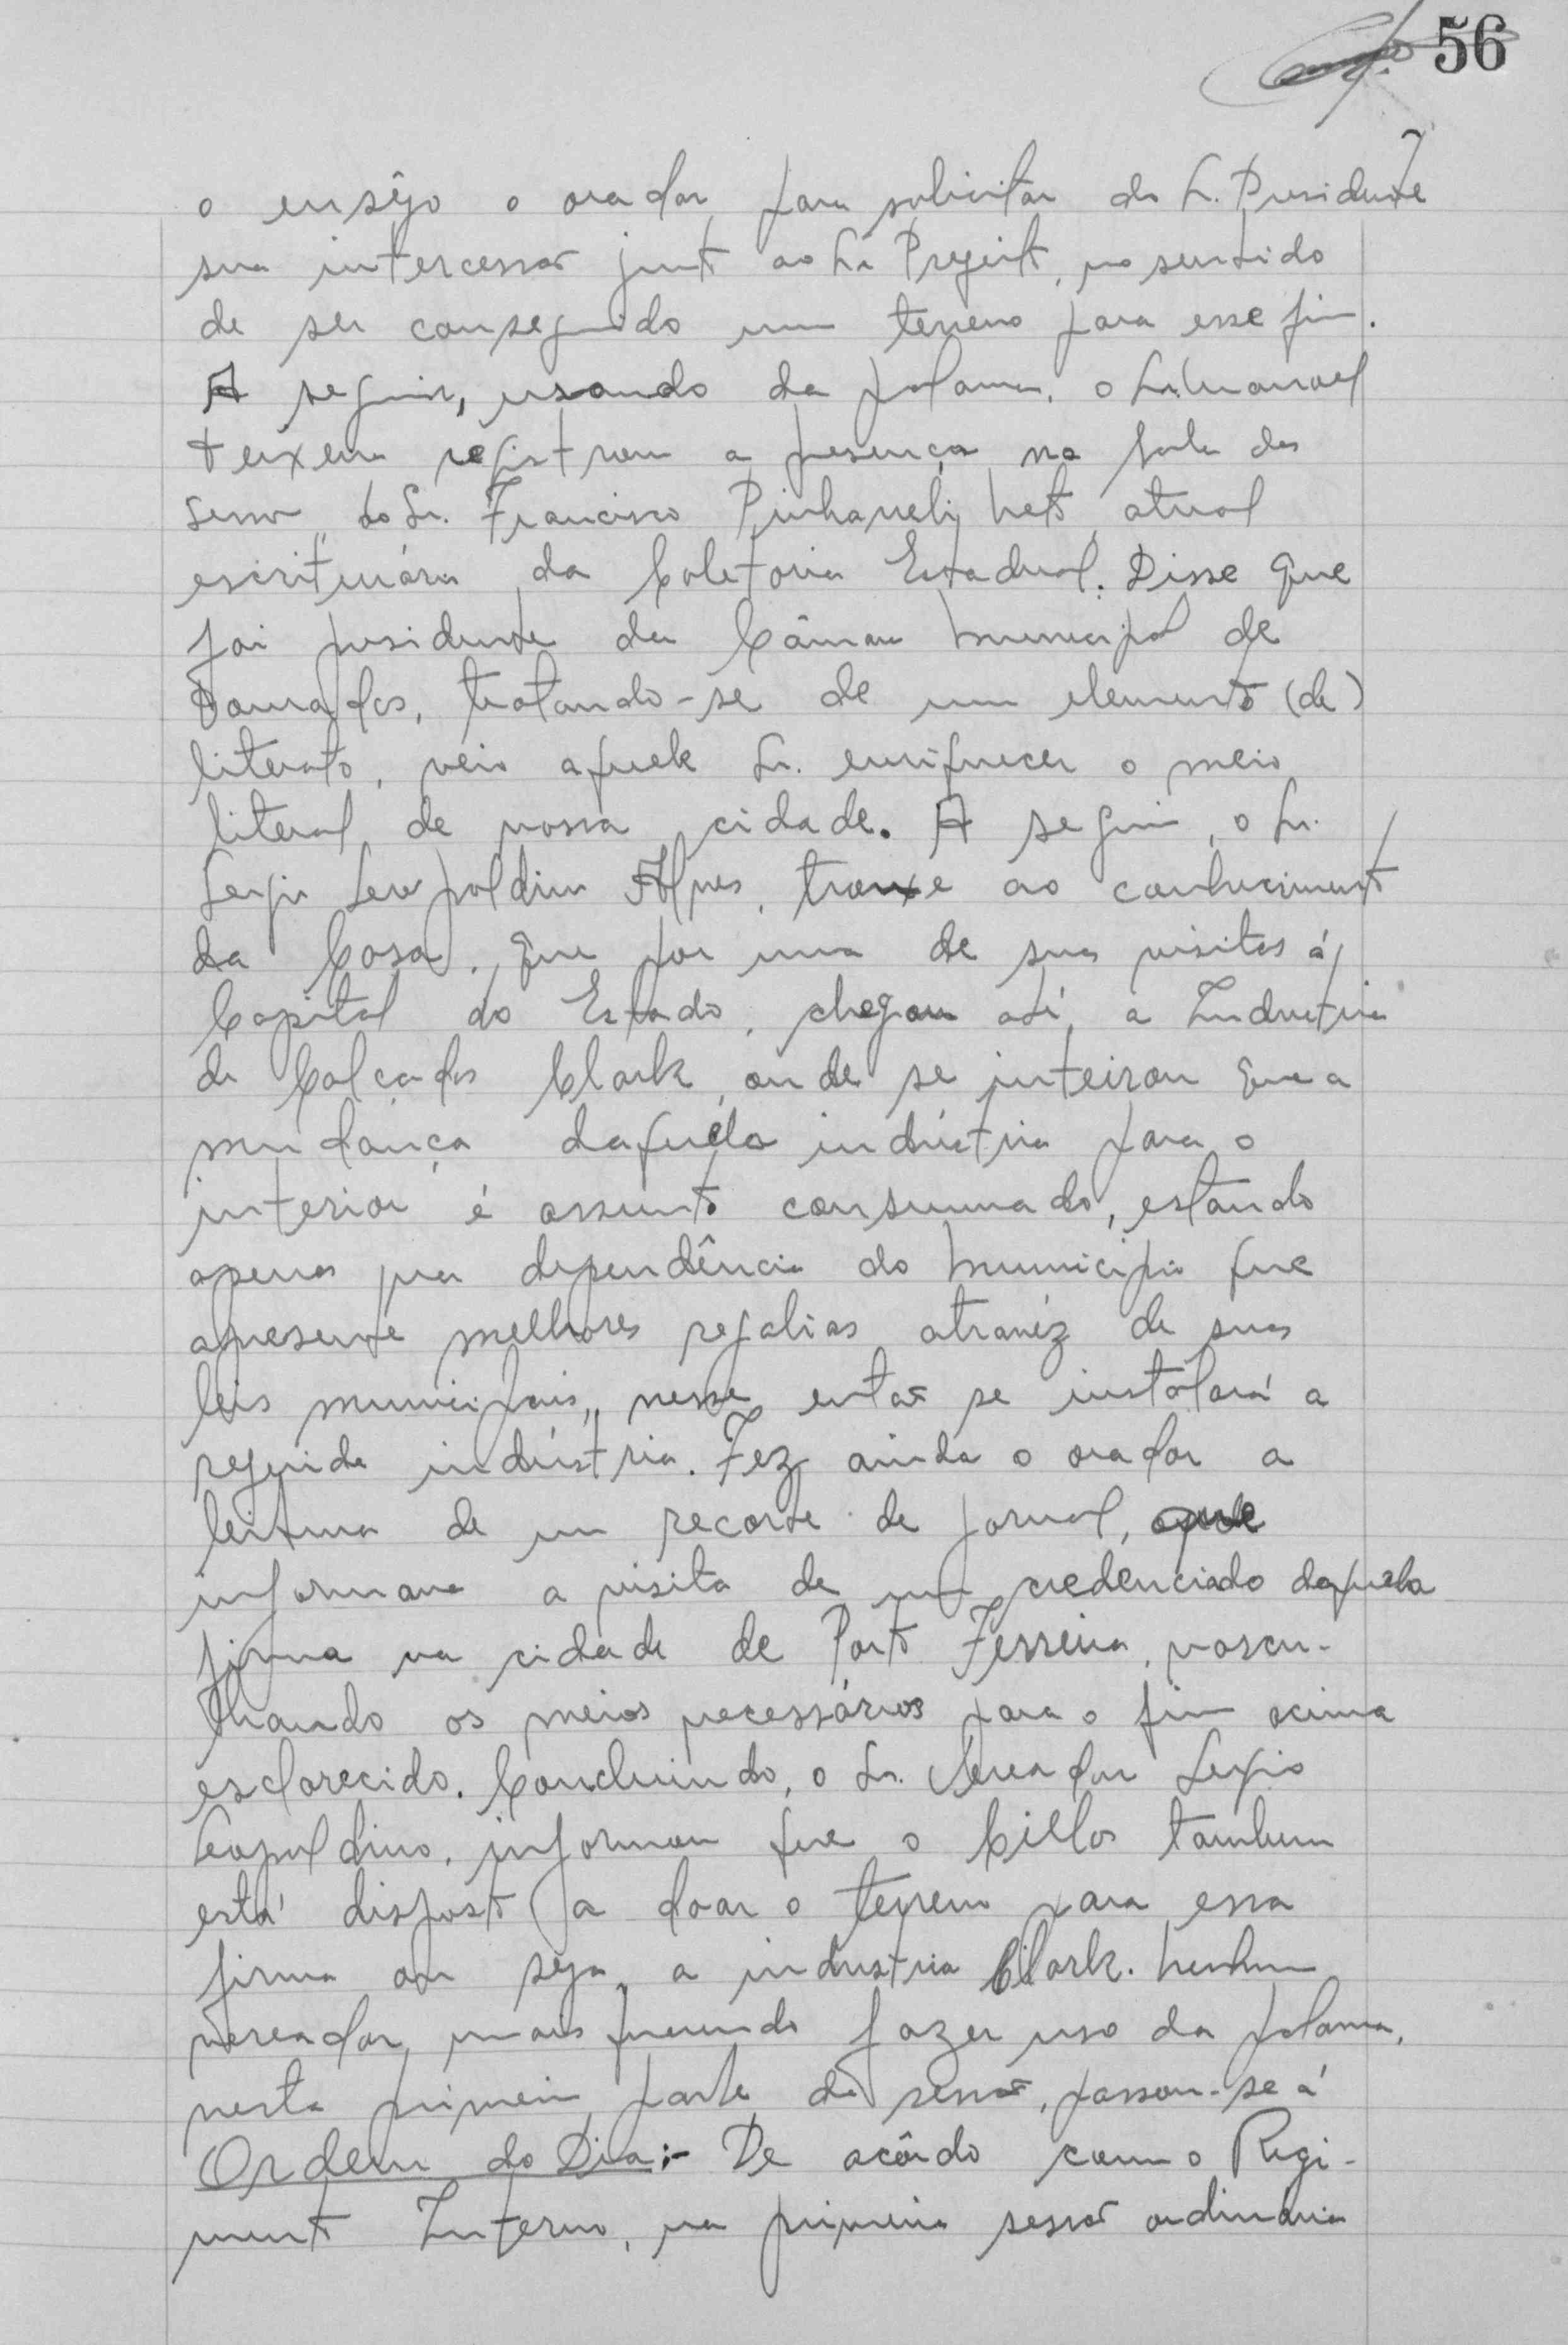 56
o ensêjo o orador para solicitar do Sr. Presidente
sua intercessão junto ao Sr. Prefeito, no sentido
de ser conseguido um terreno para esse fim.
A seguir, usando da palavra, o Sr. Manoel
Teixeira registrou a presença na sala das
sessão, do Sr. Francisco Pinhanelij Neto, atual
escriturário da Coletoria Estadual. Disse que
foi presidente da Câmara Municipal de
Dourados, tratando-se de um elemento (de)
literato, veio aquele Sr. enriquecer o meio
literal de nossa cidade. A seguir, o Sr.
Sergio Leopoldino Alves, trouxe ao conhecimento
da Casa, que por uma de suas visitas á
Capital do Estado, chegou até a Industria
de Calçados Clark, onde se inteirou que a
mudança daquela indústria para o
interior é assunto consumado, estando
apenas na dependência do Municipio que
apresente melhores regalias atravéz de suas
leis municipais, nesse então se instalará a
referida indústria. Fez ainda o orador a
leitura de um recorte de jornal, que
informava a visita de um credenciado daquela
firma na cidade de Porto Ferreira, vascu-
lhando os meios necessários para o fim acima
esclarecido. Concluindo, o Sr. Vereador Sergio
Leopoldino, informou que o Cillos tambem
está disposto a doar o terreno para essa
firma ou seja, a industria Clark. Nenhum
vereador mais querendo fazer uso da palavra,
nesta primeira parte da sessão, passou-se á
Ordem do Dia:- De acôrdo com o Regi-
mento Interno, na primeira sessão ordinária